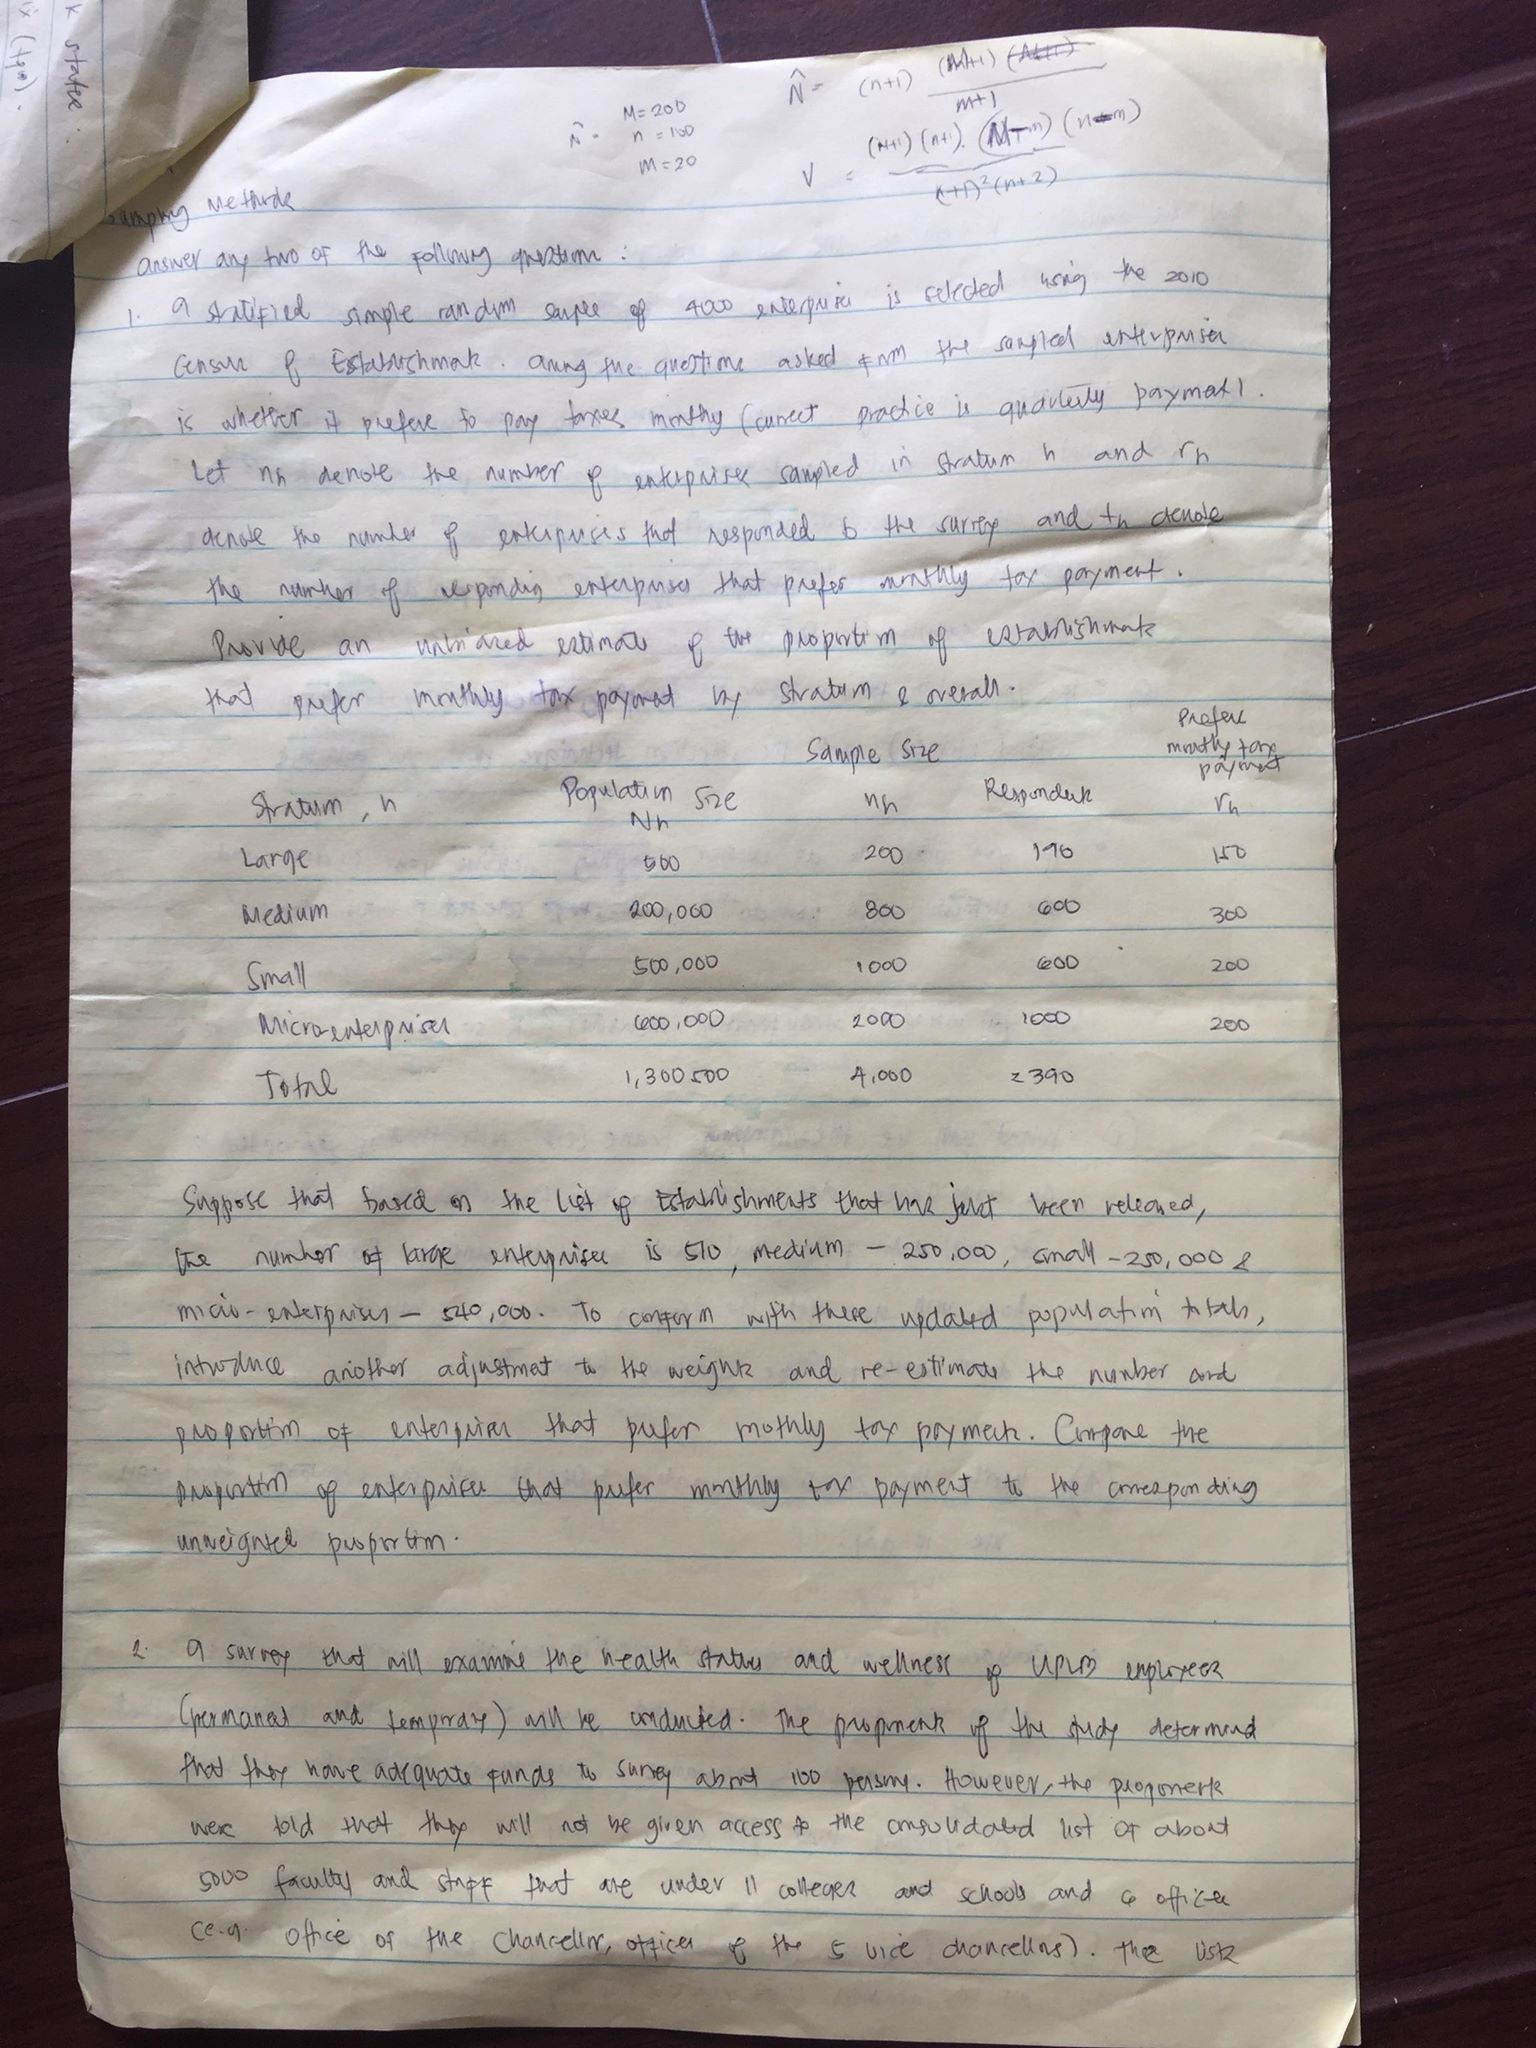 k states.
M=200
N̂ = n = 100
m=20
N̂ = (n+1) (M+1)
m+1
V = (M+1) (n+1) (M-m) (n-m)
(n+2)
Sampling Methods
answer any two of the following questions :
1. A stratified simple random sample of 4000 enterprises is selected using the 2010
Census of Establishments. Among the questions asked from the sampled enterprises
is whether it prefers to pay taxes monthly (current practice is quarterly payment).
Let nh denote the number of enterprises sampled in stratum h and rh
denote the number of enterprises that responded to the survey and th denote
the number of responding enterprises that prefer monthly tax payment.
Provide an unbiased estimate of the proportion of establishments
that prefer monthly tax payment by stratum & overall.
Stratum, h Population Size Nh Sample Size nh Respondents Prefer monthly tax payment rh
Large 500 200 190 150
Medium 200,000 800 600 300
Small 500,000 1000 600 200
Micro-enterprises 600,000 2000 1000 200
Total 1,300 500 4,000 2390
Suppose that based on the List of Establishments that has just been released,
the number of large enterprises is 510, medium - 250,000, small - 250,000 &
micro-enterprises - 540,000. To conform with these updated population totals,
introduce another adjustment to the weights and re-estimate the number and
proportion of enterprises that prefer mothly tax payment. Compare the
proportion of enterprises that prefer monthly tax payment to the corresponding
unweighted proportion.
2. A survey that will examine the health status and wellness of UPLB employees
(permanent and temporary) will be conducted. The proponents of the study determined
that they have adequate funds to survey about 100 persons. However, the proponents
were told that they will not be given access to the consolidated list of about
5000 faculty and staff that are under 11 colleges and schools and 6 offices
(e.g. office of the Chancellor, offices of the 5 vice chancellors). The lists